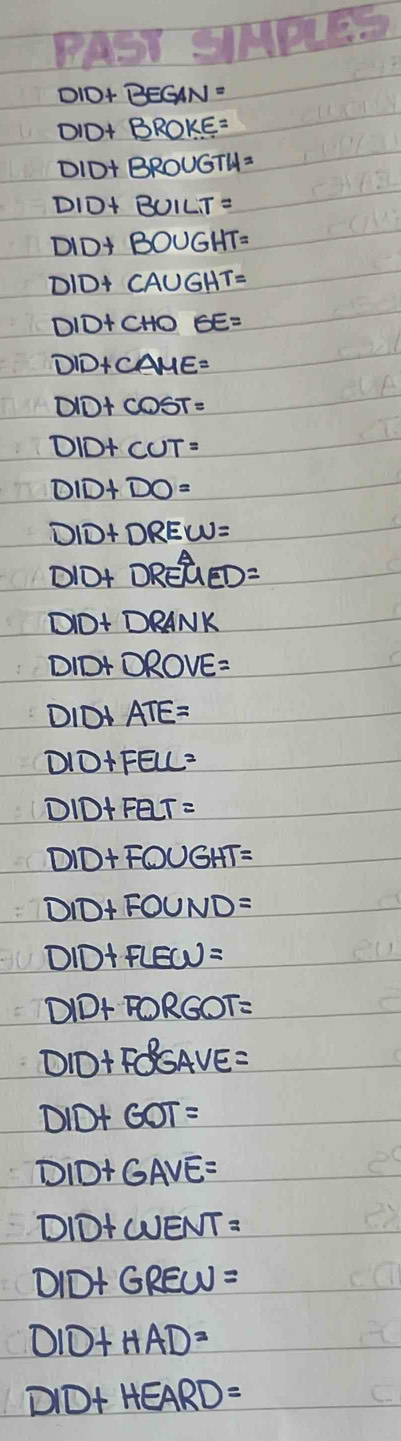 PAST SIMPLES
DID+ BEGAN=
DID+ BROKE=
DID+ BROUGTH=
DID+ BUILT=
DID+ BOUGHT=
DID+ CAUGHT=
DID+ CHO SE=
DID+ CAME=
DID+ COST=
DID+ CUT=
DID+ DO=
DID+ DREW=
DID+ DREAMED=
DID+ DRANK
DID+ DROVE=
DID+ ATE=
DID+ FELL=
DID+ FELT=
DID+ FOUGHT=
DID+ FOUND=
DID+ FLEW=
DID+ FORGOT=
DID+ FORGAVE=
DID+ GOT=
DID+ GAVE=
DID+ WENT=
DID+ GREW=
DID+ HAD=
DID+ HEARD=